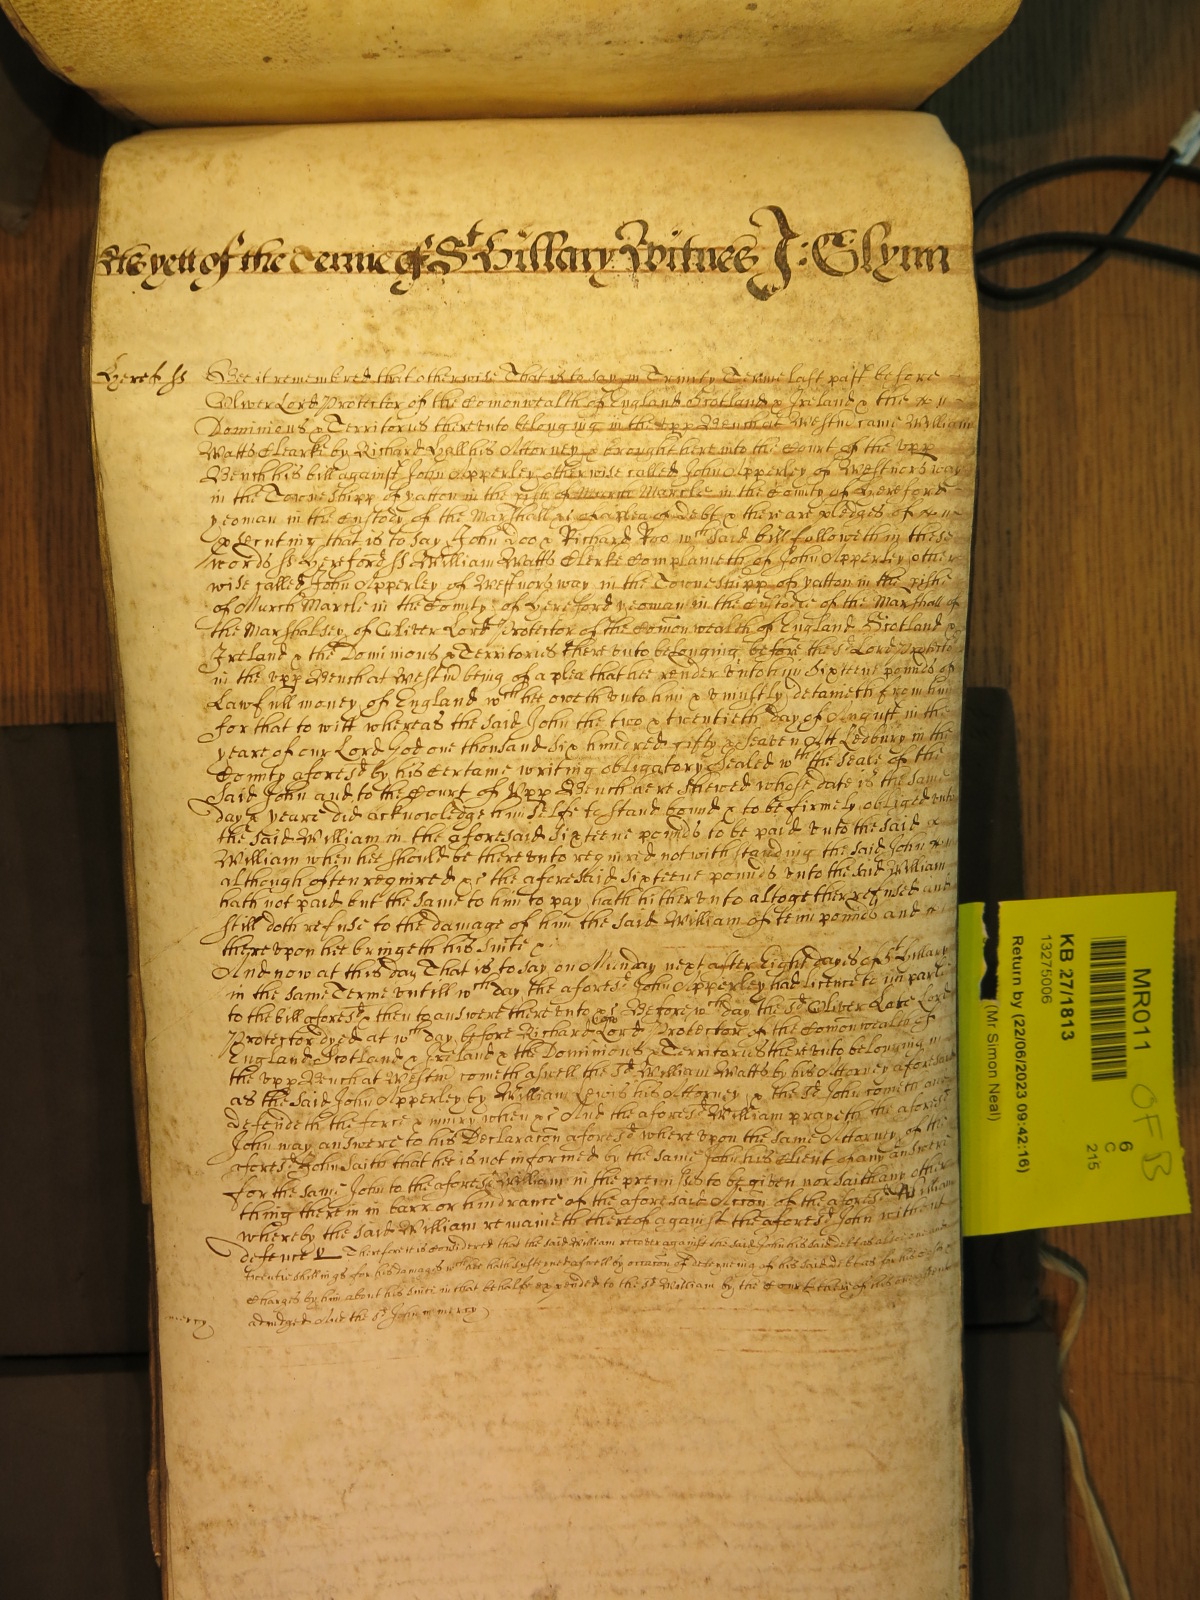 As yett of the Terme of St Hillary Witnes J: Glynn
Heref ss Bee it remembred that otherwise That is to say in Trinity Terme last past before
Oliver Lord Protector of the Comonwealth of England Scotland & Ireland & the
Dominions & Territories thereunto belonging in the upp Bench at Westm came William
Watts Clearke by Richard Hall his Attorney & brought here into the Court of the upp
Bench his bill against John Apperley otherwise called John Apperley of Westnors way
in the Towneshipp of yatton in the pish of Much Marcle in the County of Hereford
yeoman in the Custody of the Marshall &c of a plea of Debt & there are pledges of
psecuting that is to say John Doo & Richard Roo wch said bill followeth in these
words ss Hereford ss William Watts Clerke Complaineth of John Apperley other
wise called John Apperley of Westnors way in the Towneshipp of yatton in the pishe
of Much Marcle in the County of Hereford yeoman in the Custodie of the Marshall of
the Marshalsey of Oliver Lord Protector of the Comonwealth of England Scotland &
Ireland & the Dominions & Territories thereunto belonging before the sd Lord Protector
in the upp Bench at Westm being of a plea that hee render unto him Sixteene pounds of
Lawfull money of England wch hee oweth unto him & uniustly detaineth from him
for that to witt whereas the said John the two & twentieth day of August in the
yeare of our Lord God one thousand six hundred fifty & seaven Att Ledbury in the
County aforesd by his Certaine writing obligatory Sealed wth the Seale of the
said John and to the Court of Upp Bench here shewed whose date is the same
day & yeare did acknowledge himselfe to stand bound & to be firmely obliged unto
the said William in the aforesaid Sixteene pounds to be paid unto the said
William when hee should be thereunto required notwithstanding the said John
although often required &c the aforesaid sixteene pounds unto the said William
hath not paid but the same to him to pay hath hitherunto altogether refused and
still doth refuse to the damage of him the said William of tenn pounds and
thereupon hee bringeth his suite &c
And now at this day That is to say on Munday next after Eight dayes of St Hillary
in the same Terme untill wch day the aforesd John Apperley had licence to imparle
to the bill aforesd & then to answere thereunto &c Before wch day the sd Oliver Late Lord
Protector dyed at wch day before Richard Lord Protector of the Comonwealth of
England Scotland & Ireland & the Dominions & Territories thereunto belonging in
the upp Bench at Westm cometh aswell the sd William Watts by his Attorney aforesaid
as the said John Apperley by William his Attorney & the sd John cometh and
defendeth the force & iniury when &c And the aforesd William prayeth the aforesd
John may answere to his Declaracon aforesd whereupon the same Attorney of the
aforesd John saith that hee is not informed by the same John his Client of any answere
for the same John to the aforesd William in the premisses to be given nor saith any other
thing therein in barr or hindrance of the aforesaid Accon of the aforesd William
whereby the said William remaineth thereof against the aforesd John without
defence &c Therefore it is considered that the said William recover against the said John his said debt as also
twentie shillings for his damages wch hee hath susteyned aswell by occacon of deteyneing of his said debt as for his
Charges by him about his suite in that behalfe expended to the sd William by the Court here of his
mercy adiudged And the sd John in mercy
MR011
KB 27/1813
13275006
Return by (22/06/2023 09:42:16)
(Mr Simon Neal)
6
C
215
OF B